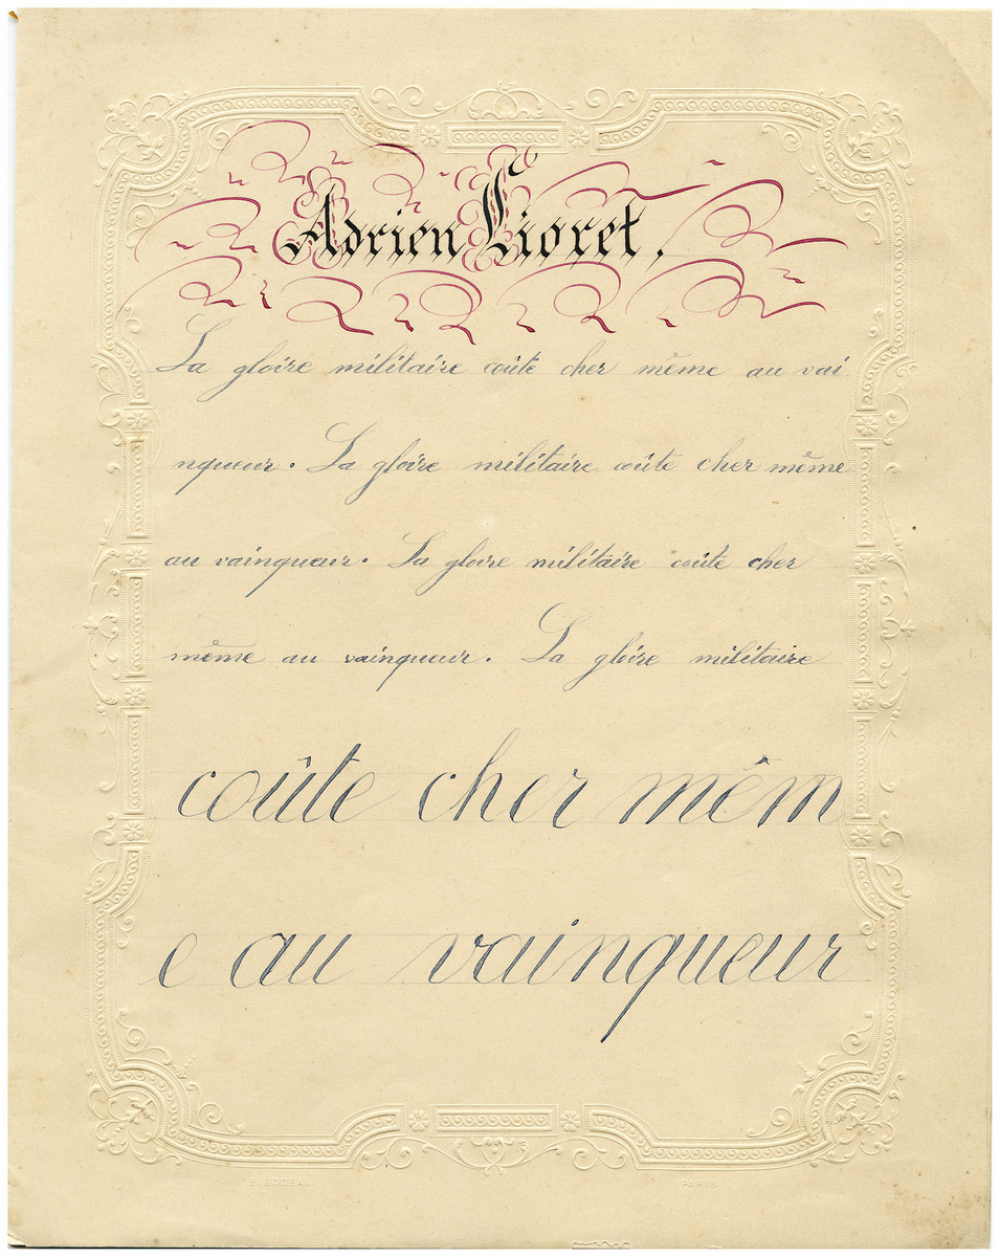 Adrien Lioret.
La gloire militaire coûte cher même au vai
nqueur. La gloire militaire coûte cher même
au vainqueur. La gloire militaire coûte cher
même au vainqueur. La gloire militaire
coûte cher mêm
e au vainqueur
PARIS